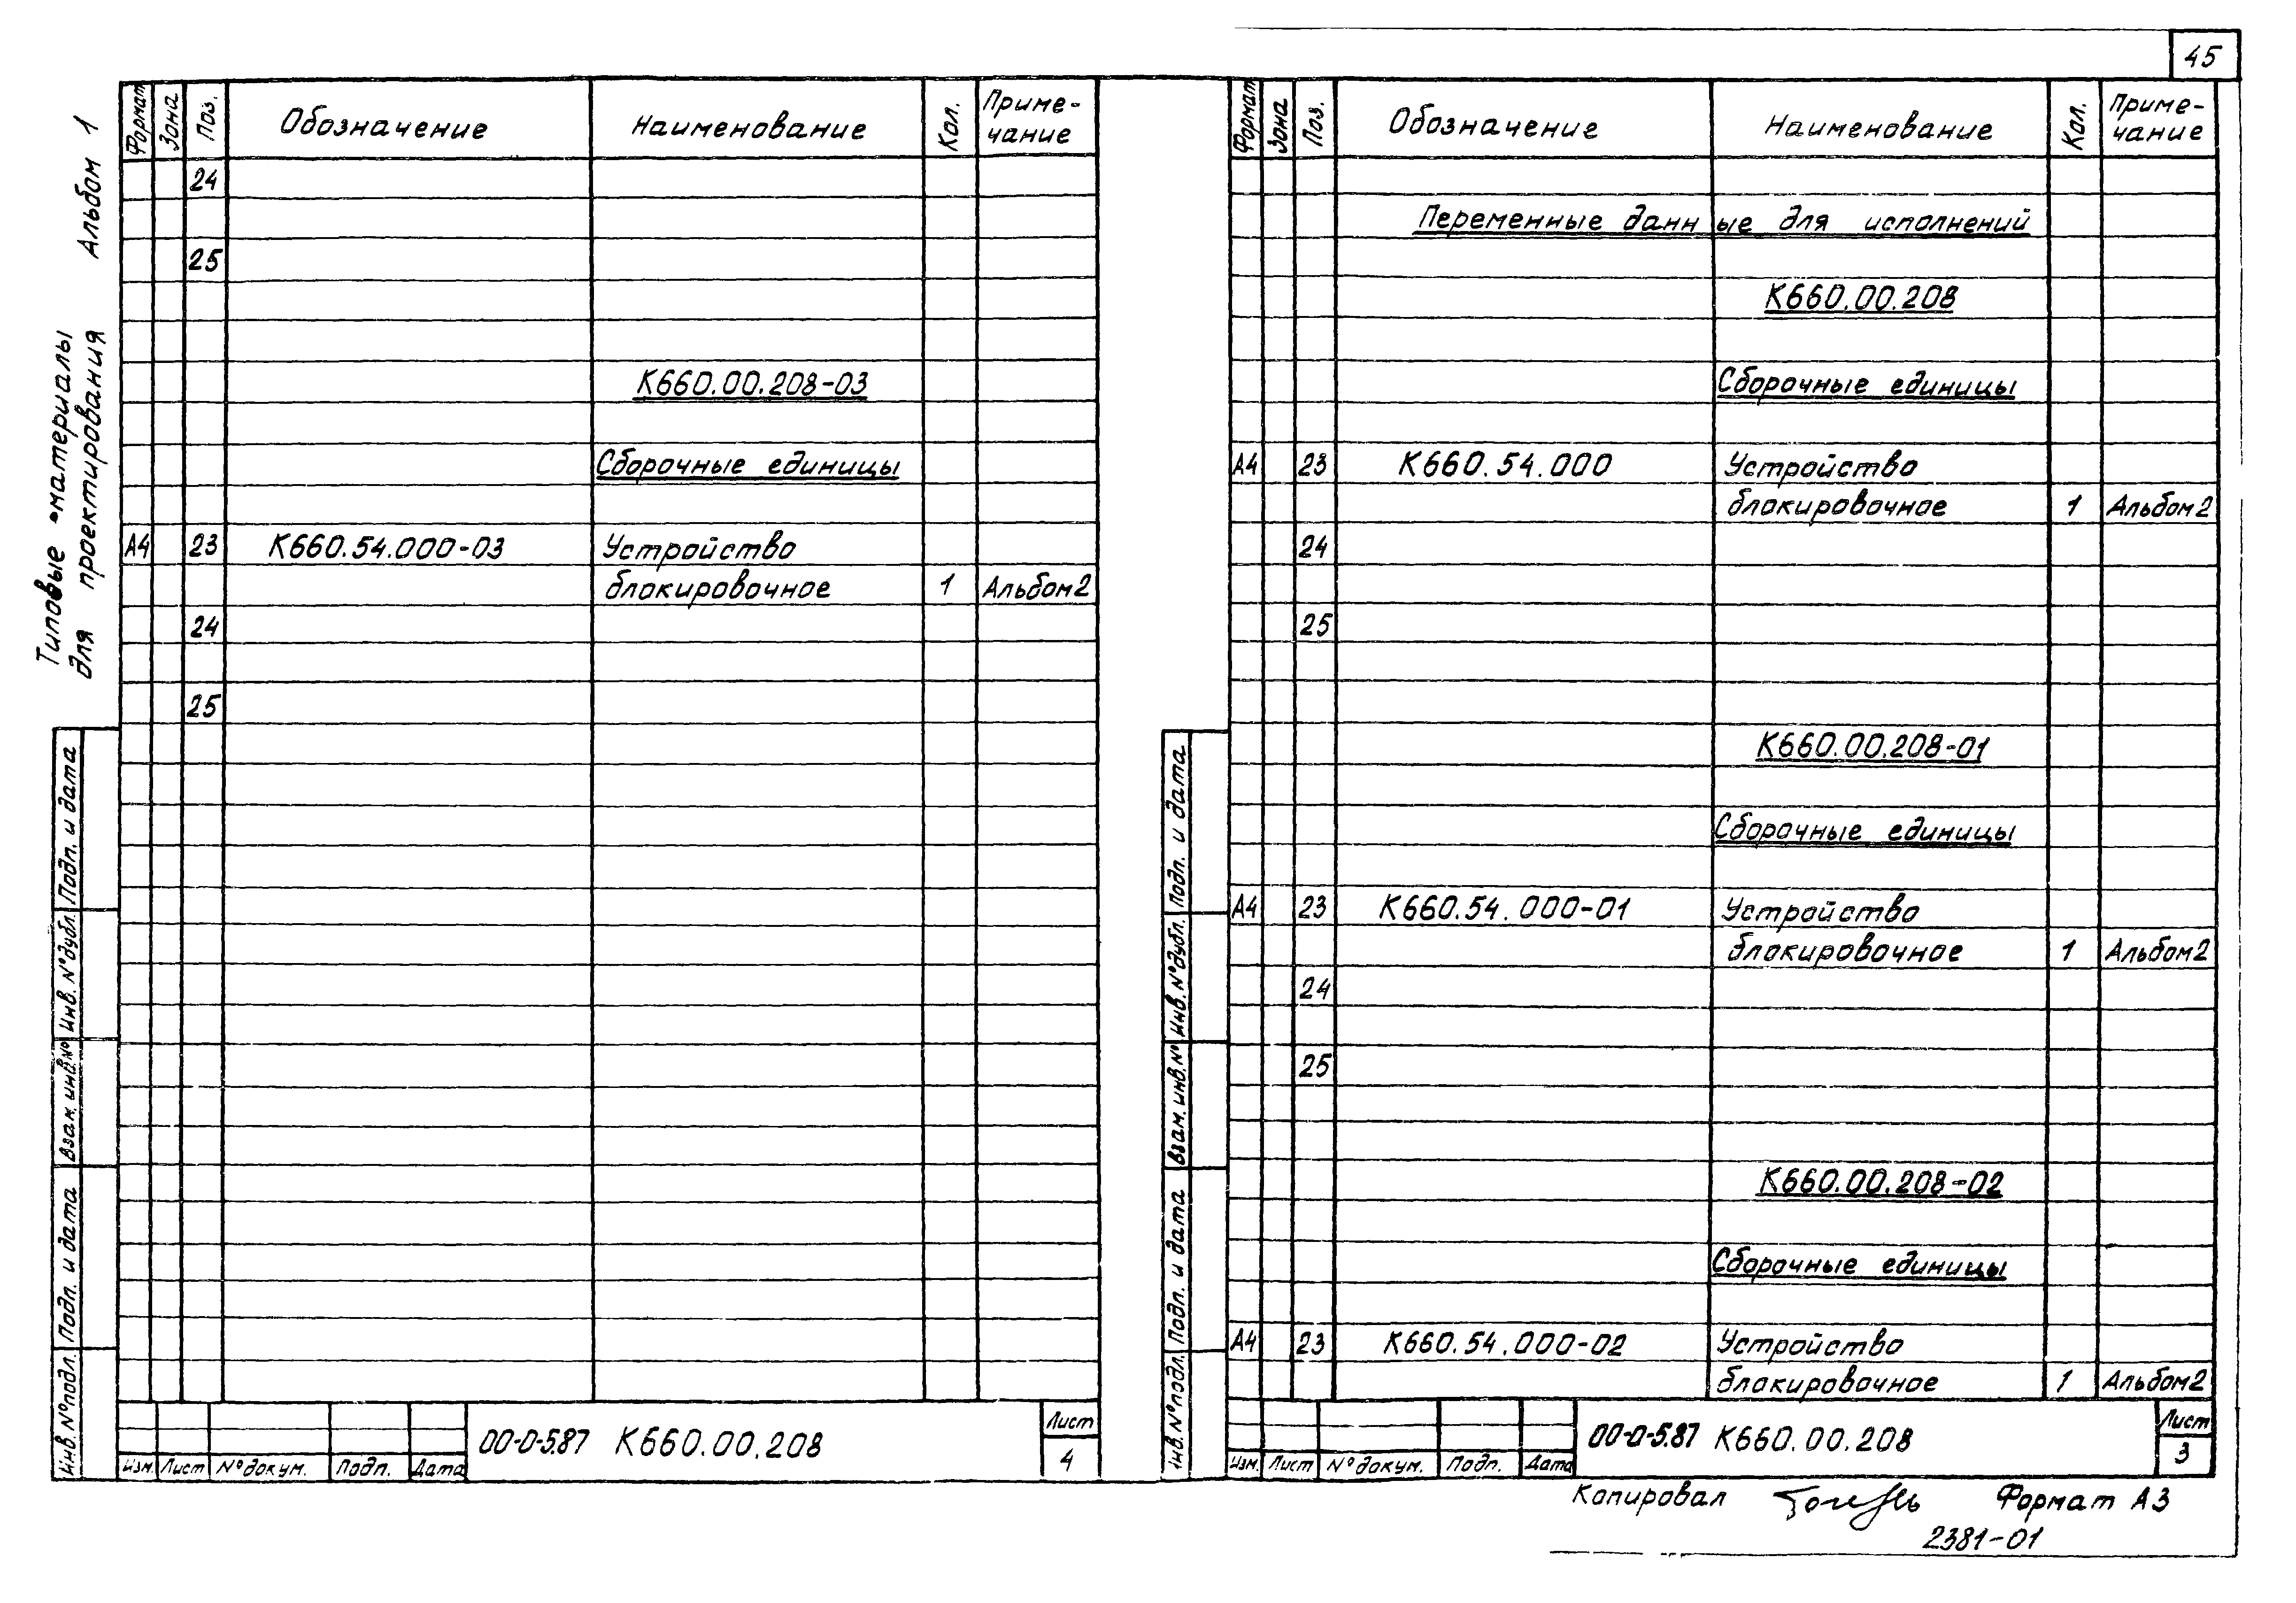 45
Типовые материалы
для проектирования Альбом 1
Формат Зона Поз. Обозначение Наименование Кол. Приме-
чание
24
25
К660.00.208-03
Сборочные единицы
А4 23 К660.54.000-03 Устройство
блокировочное 1 Альбом2
24
25
Подп. и дата
Инв. № дубл.
Взам. инв. №
Подп. и дата
Инв. № подл.
Изм. Лист № докум. Подп. Дата
00-0-5.87 К660.00.208
Лист
4
Формат Зона Поз. Обозначение Наименование Кол. Приме-
чание
Переменные данные для исполнений
К660.00.208
Сборочные единицы
А4 23 К660.54.000 Устройство
блокировочное 1 Альбом2
24
25
К660.00.208-01
Сборочные единицы
А4 23 К660.54.000-01 Устройство
блокировочное 1 Альбом2
24
25
К660.00.208-02
Сборочные единицы
А4 23 К660.54.000-02 Устройство
блокировочное 1 Альбом2
Подп. и дата
Инв. № дубл.
Взам. инв. №
Подп. и дата
Инв. № подл.
Изм. Лист № докум. Подп. Дата
00-0-5.87 К660.00.208
Лист
3
Копировал Формат А3
2381-01